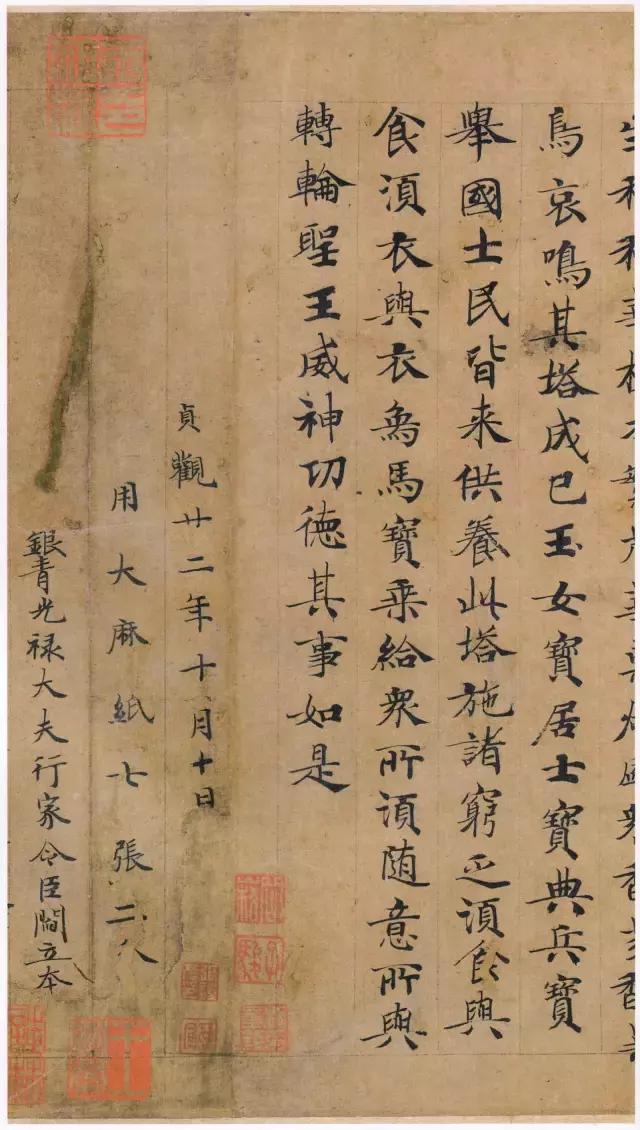 鳥哀鳴其塔成已玉女寶居士寶典兵寶
舉國士民皆来供養此塔施諸窮乏湏食與
食湏衣與衣象馬寶乘給衆所湏随意所與
轉輪聖王威神功德其事如是
貞觀廿二年十月十日
用大麻紙七張二分
銀青光禄大夫行家令臣閻立本